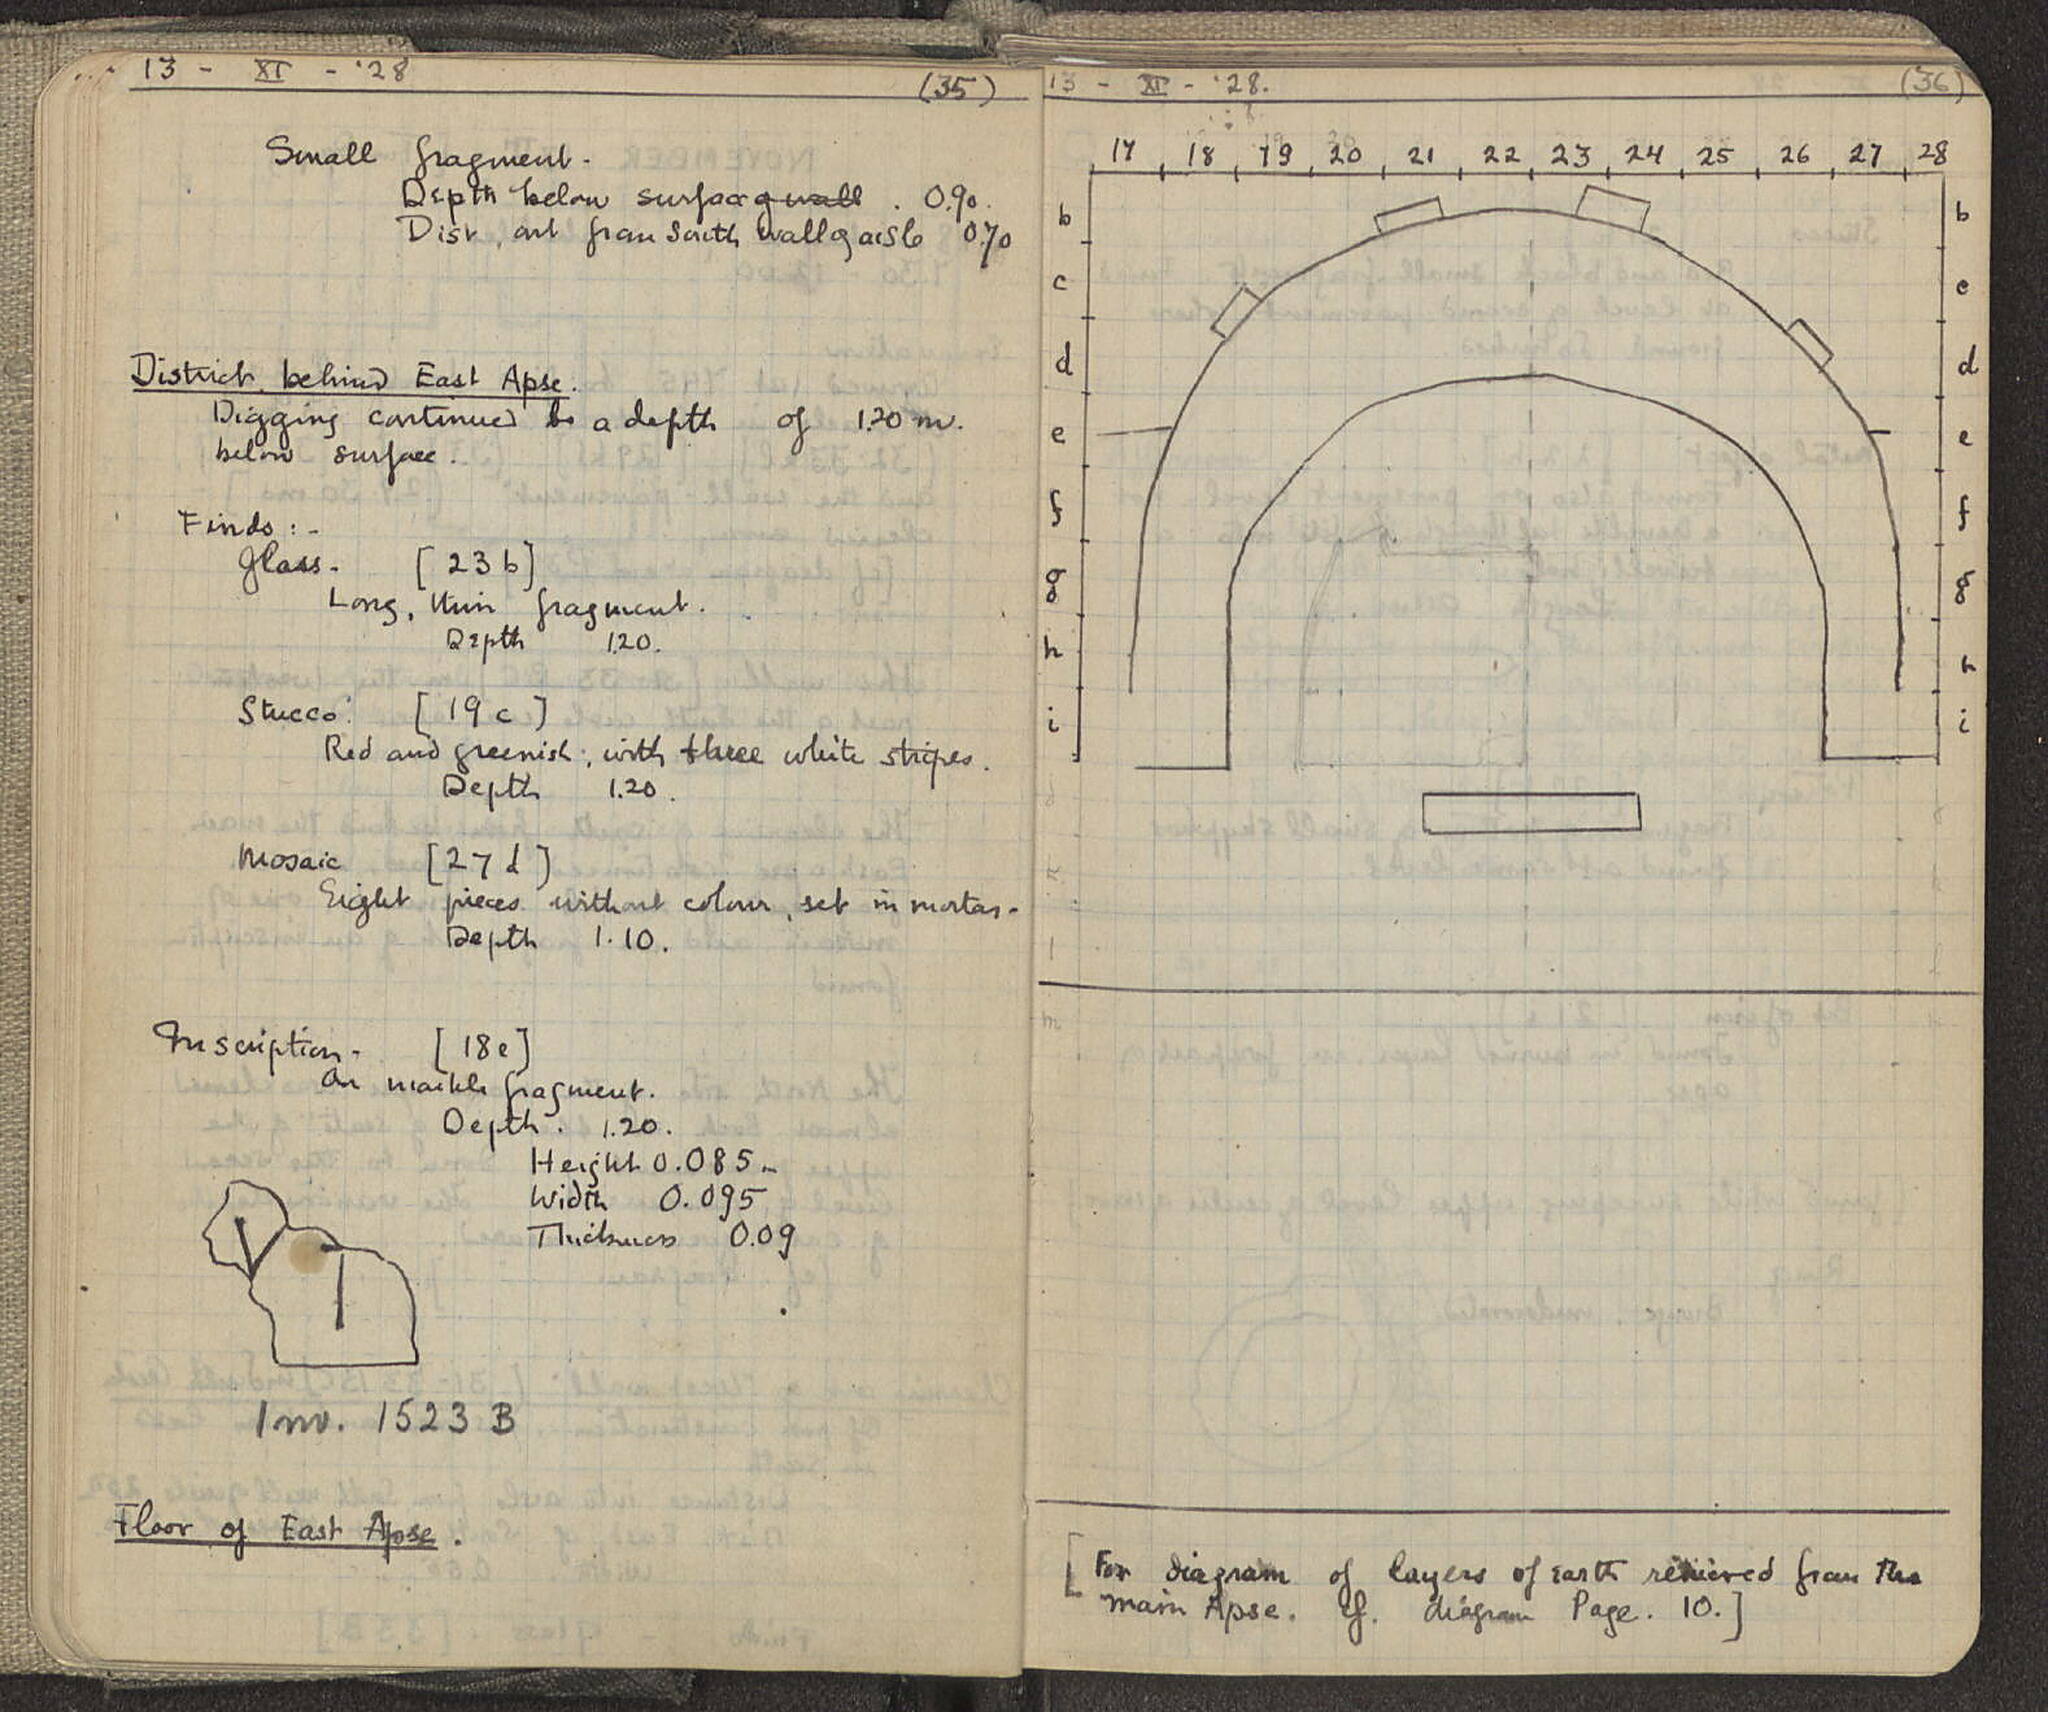 13 - XI - '28
(35)
Small fragment.
Depth below surface of wall . 0.90.
Dist. out from South wall of aisle 0.70
District behind East Apse.
Digging continued to a depth of 1.20 m.
below surface.
Finds :-
Glass - [23 b]
Long, thin fragment.
Depth 1.20.
Stucco: [19 c]
Red and greenish; with three white stripes.
Depth 1.20.
Mosaic [27 d]
Eight pieces without colour, set in mortar.
Depth 1.10.
Inscription - [18 e]
On marble fragment.
Depth. 1.20.
Height 0.085
Width 0.095
Thickness 0.09
Inv. 1523 B
Floor of East Apse.
13 - XI - '28.
(36)
17 18 19 20 21 22 23 24 25 26 27 28
b b
c c
d d
e e
f f
g g
h h
i i
l
m
[For diagram of layers of earth removed from the
main Apse. cf. diagram Page. 10.]